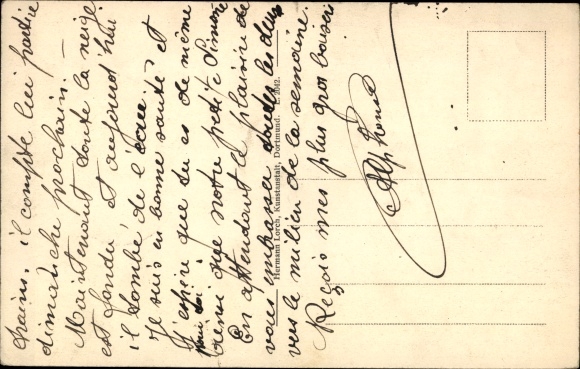 trains. il compte lui partir
dimanche prochain.
Maintenant toute la neige
est fondu et aujourd'hui
il tombé de l'eau.
Je suis en bonne santé et
j'espère que tu es de même
ainsi que notre petite Simone
En attendant le plaisir de
vous embrasser toutes les deux
vers le milieu de la semaine
Reçois mes plus gros baisers
Alphonse
Hermann Lorch, Kunstanstalt, Dortmund.